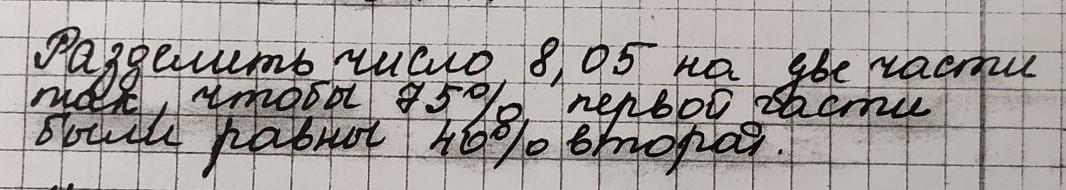 Разделить число 8,05 на две части
так, чтобы 75% первой части
были равны 40% второй.